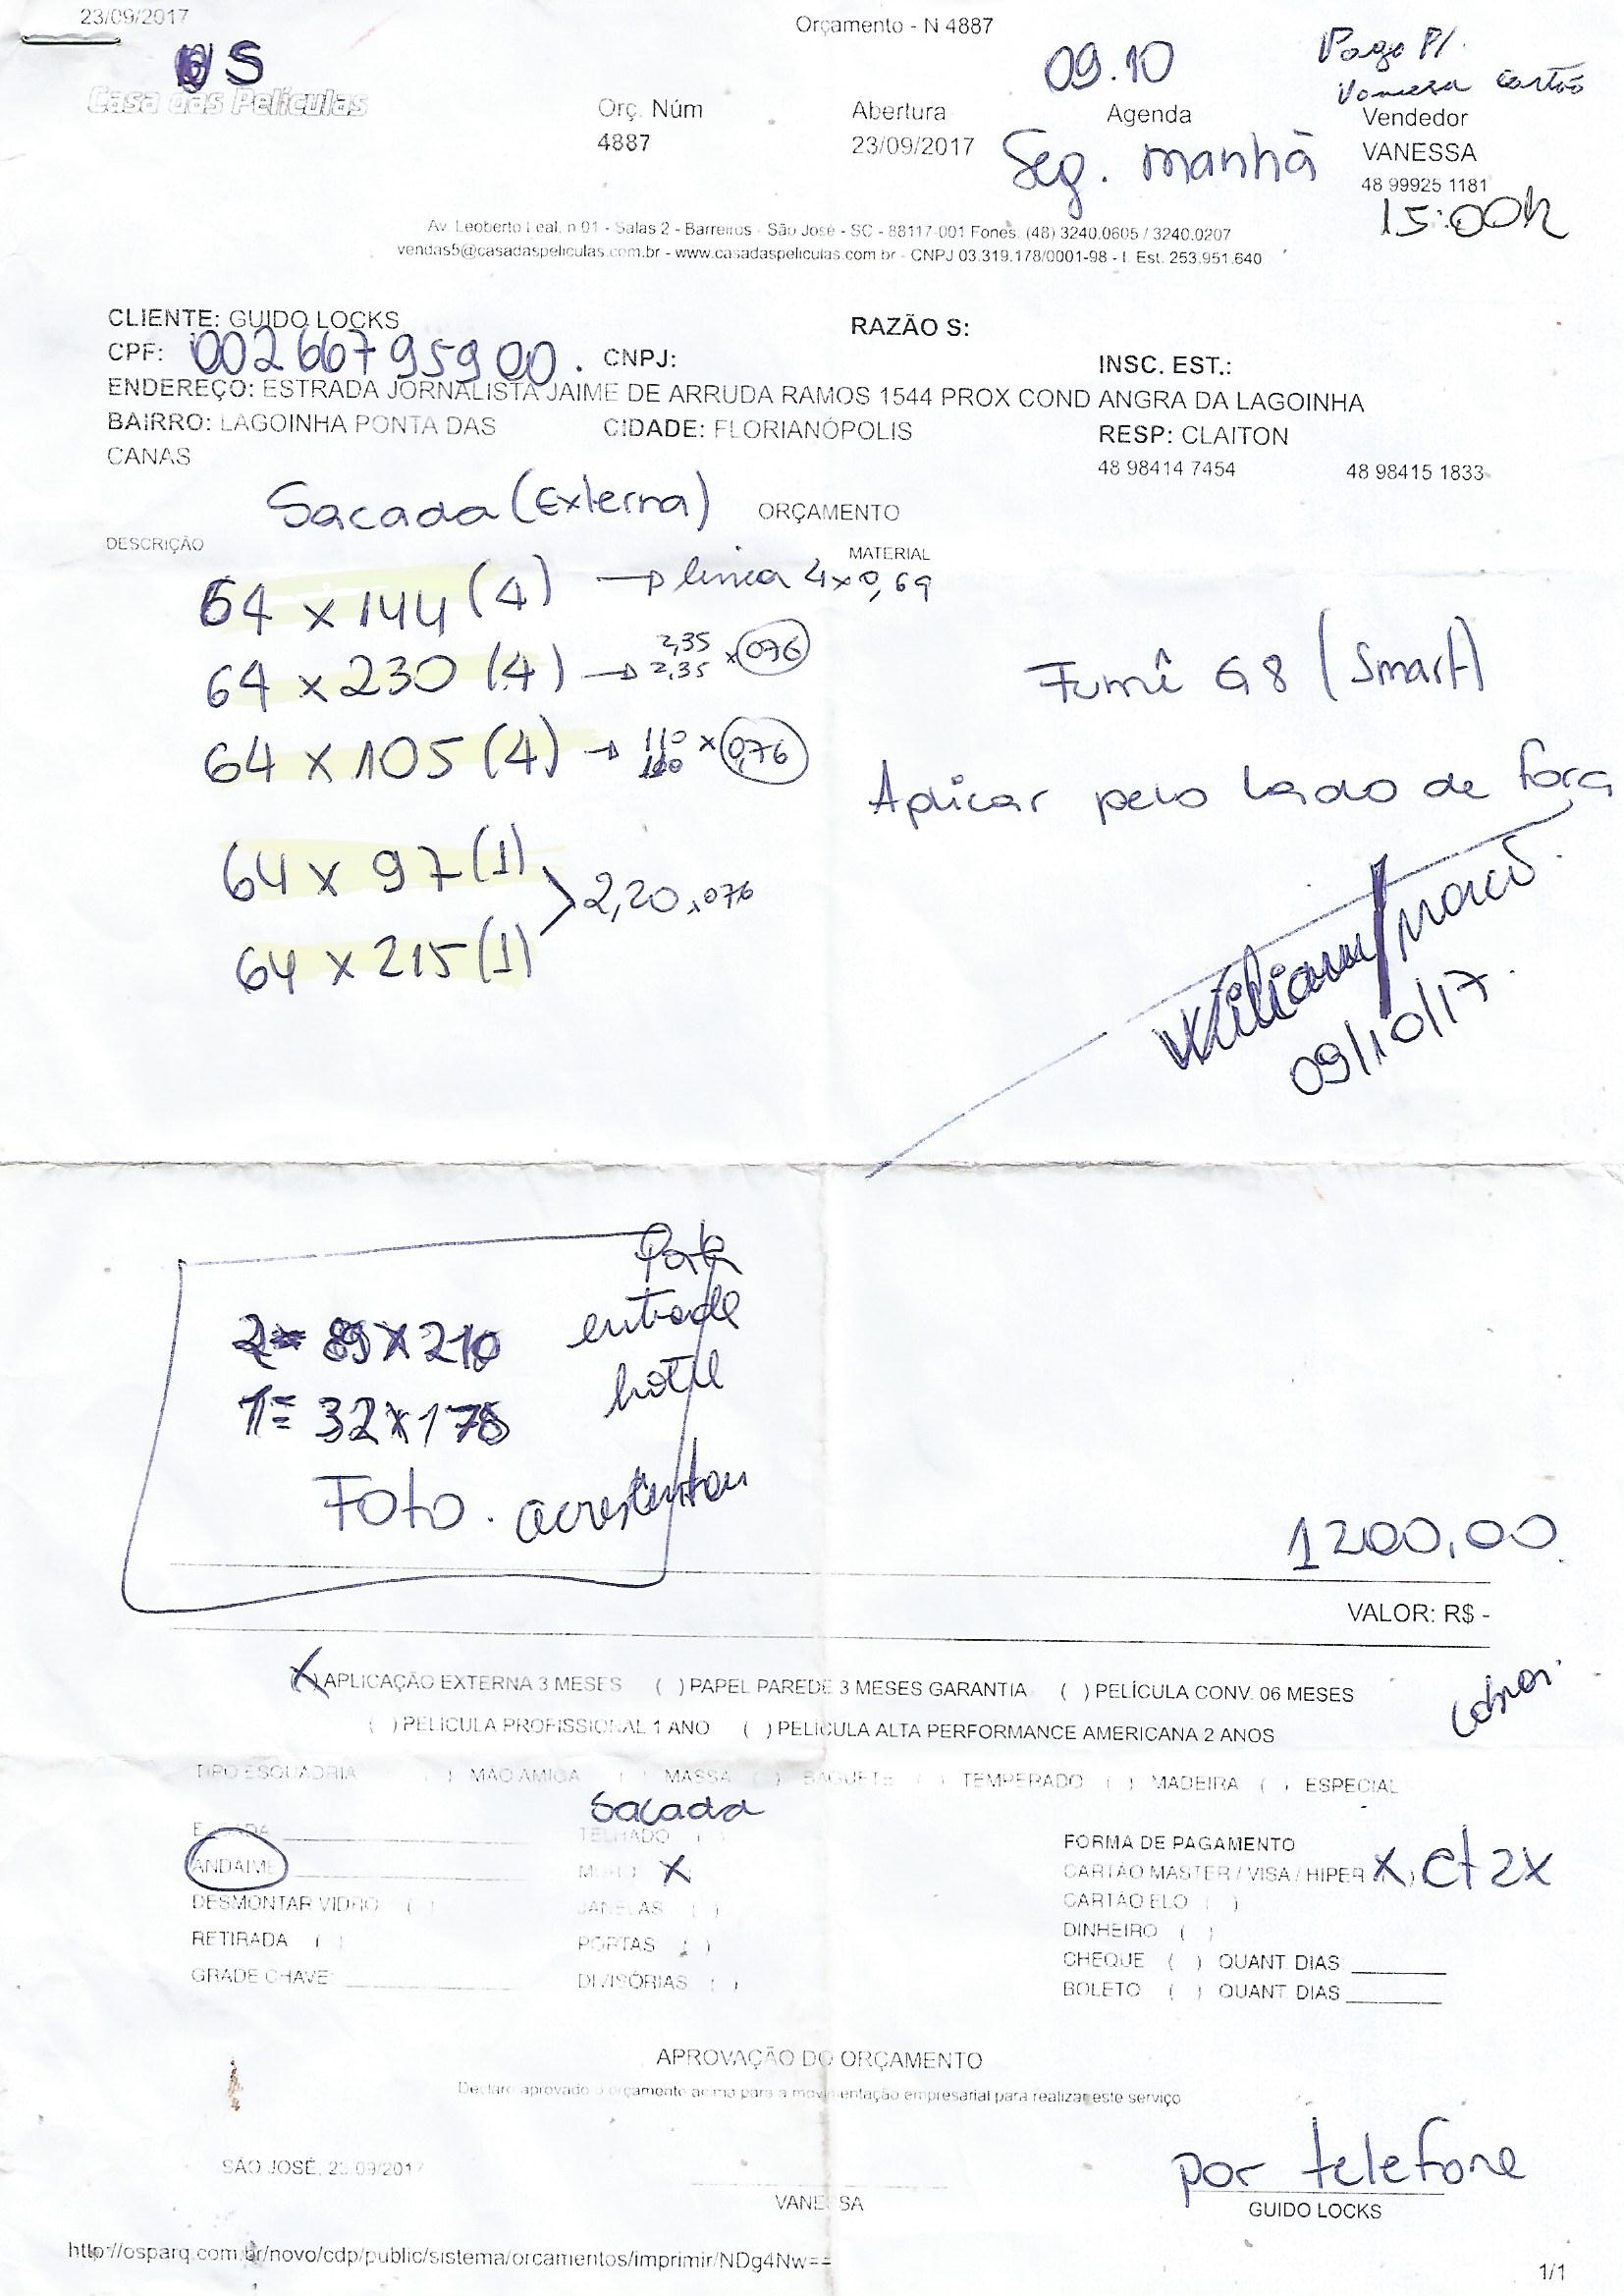 23/09/2017
Orçamento - N 4887
S
09.10
Pago P/.
Vanessa cartão
Casa das Películas
Orç. Núm
Abertura
Agenda
Vendedor
4887
23/09/2017
Seg. manhã
VANESSA
48 99925 1181
15:00h
Av. Leoberto Leal, n 01 - Salas 2 - Barreiros - São José - SC - 88117-001 Fones. (48) 3240.0605 / 3240.0207
vendas5@casadaspeliculas.com.br - www.casadaspeliculas.com.br - CNPJ 03.319.178/0001-98 - I. Est. 253.951.640
CLIENTE: GUIDO LOCKS
RAZÃO S:
CPF: 00266795900.
CNPJ:
INSC. EST.:
ENDEREÇO: ESTRADA JORNALISTA JAIME DE ARRUDA RAMOS 1544 PROX COND ANGRA DA LAGOINHA
BAIRRO: LAGOINHA PONTA DAS
CANAS
CIDADE: FLORIANÓPOLIS
RESP: CLAITON
48 98414 7454
48 98415 1833
Sacada (Externa)
ORÇAMENTO
DESCRIÇÃO
MATERIAL
64 x 144 (4) → 4x0,69
64 x 230 (4) → 2,35 2,35 x 076
64 x 105 (4) → 110 x 0,76
64 x 97 (1)
2,20 x 076
64 x 215 (1)
Fumê G8 (Smart)
Aplicar pelo lado de fora
09/10/17.
Porta
entrada
hotel
2= 89 x 210
1= 32 x 178
Foto. acrescentou
1200,00
VALOR: R$ -
(X) APLICAÇÃO EXTERNA 3 MESES ( ) PAPEL PAREDE 3 MESES GARANTIA ( ) PELÍCULA CONV. 06 MESES
( ) PELICULA PROFISSIONAL 1 ANO ( ) PELICULA ALTA PERFORMANCE AMERICANA 2 ANOS
TIPO ESQUADRIA ( ) MÃO AMIGA ( ) MASSA ( ) BAGUETE ( ) TEMPERADO ( ) MADEIRA ( ) ESPECIAL
Sacada
TELHADO ( )
ANDAIME
MURO X
DESMONTAR VIDRO ( )
JANELAS ( )
RETIRADA ( )
PORTAS ( )
GRADE CHAVE:
DIVISÓRIAS ( )
FORMA DE PAGAMENTO
CARTÃO MASTER / VISA / HIPER X ) Ct 2X
CARTÃO ELO ( )
DINHEIRO ( )
CHEQUE ( ) QUANT DIAS
BOLETO ( ) QUANT DIAS
APROVAÇÃO DO ORÇAMENTO
Declaro aprovado o orçamento acima para a movimentação empresarial para realizar este serviço
SÃO JOSÉ, 23/09/2017
por telefone
VANESSA
GUIDO LOCKS
http://osparq.com.br/novo/cdp/public/sistema/orcamentos/imprimir/NDg4Nw==
1/1